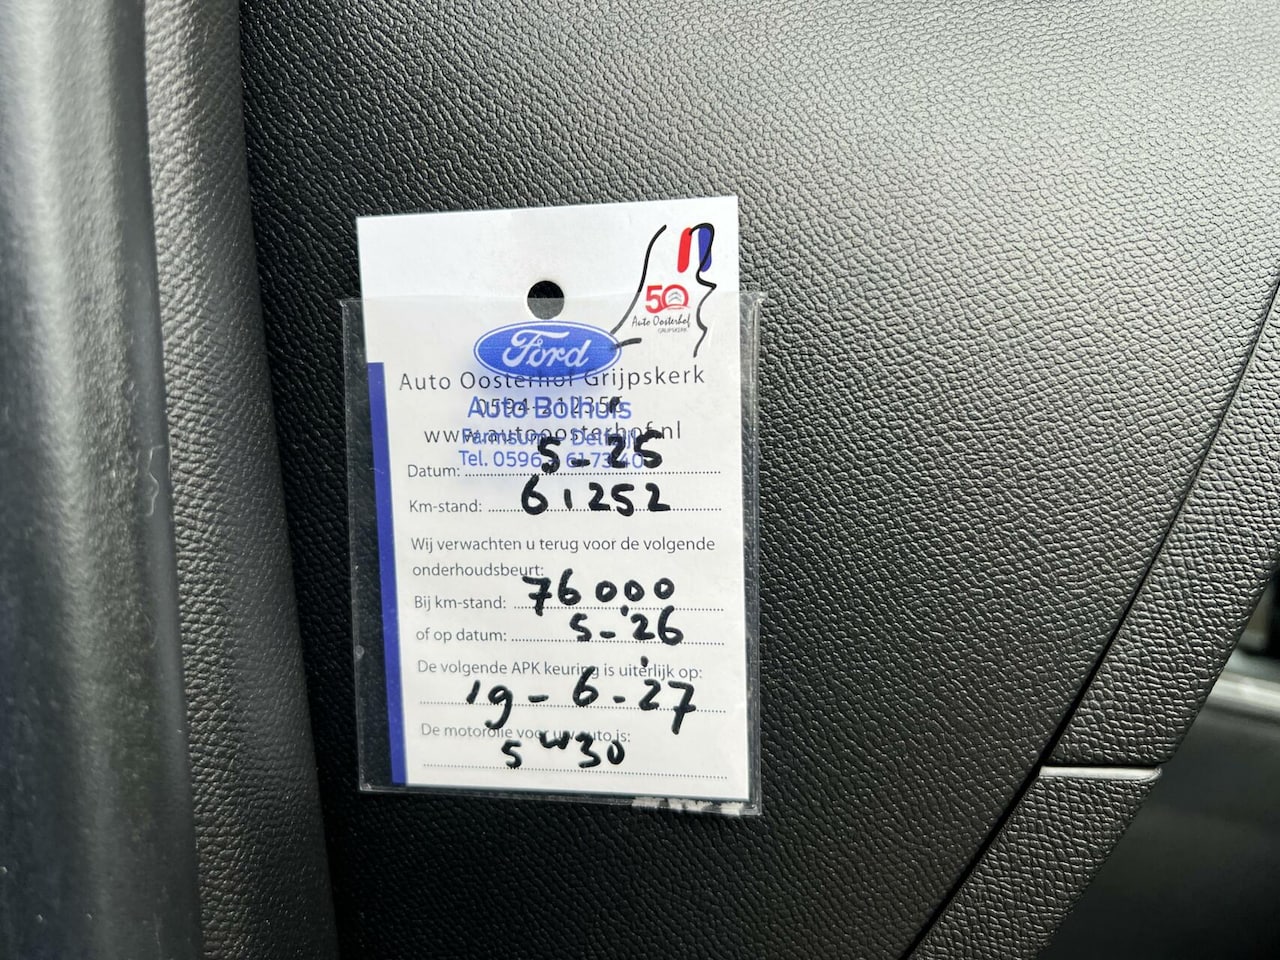 50
Auto Oosterhof
GRIJPSKERK
Ford
Auto Oosterhof Grijpskerk
Auto Bolhuis
www.autooosterhof.nl
Farmsum - Delfzijl
Tel. 0596 - 617340
Datum: 5-25
Km-stand: 61252
Wij verwachten u terug voor de volgende
onderhoudsbeurt:
Bij km-stand: 76000
of op datum: 5-'26
De volgende APK keuring is uiterlijk op:
19-6-'27
De motorolie voor uw auto is:
5W30